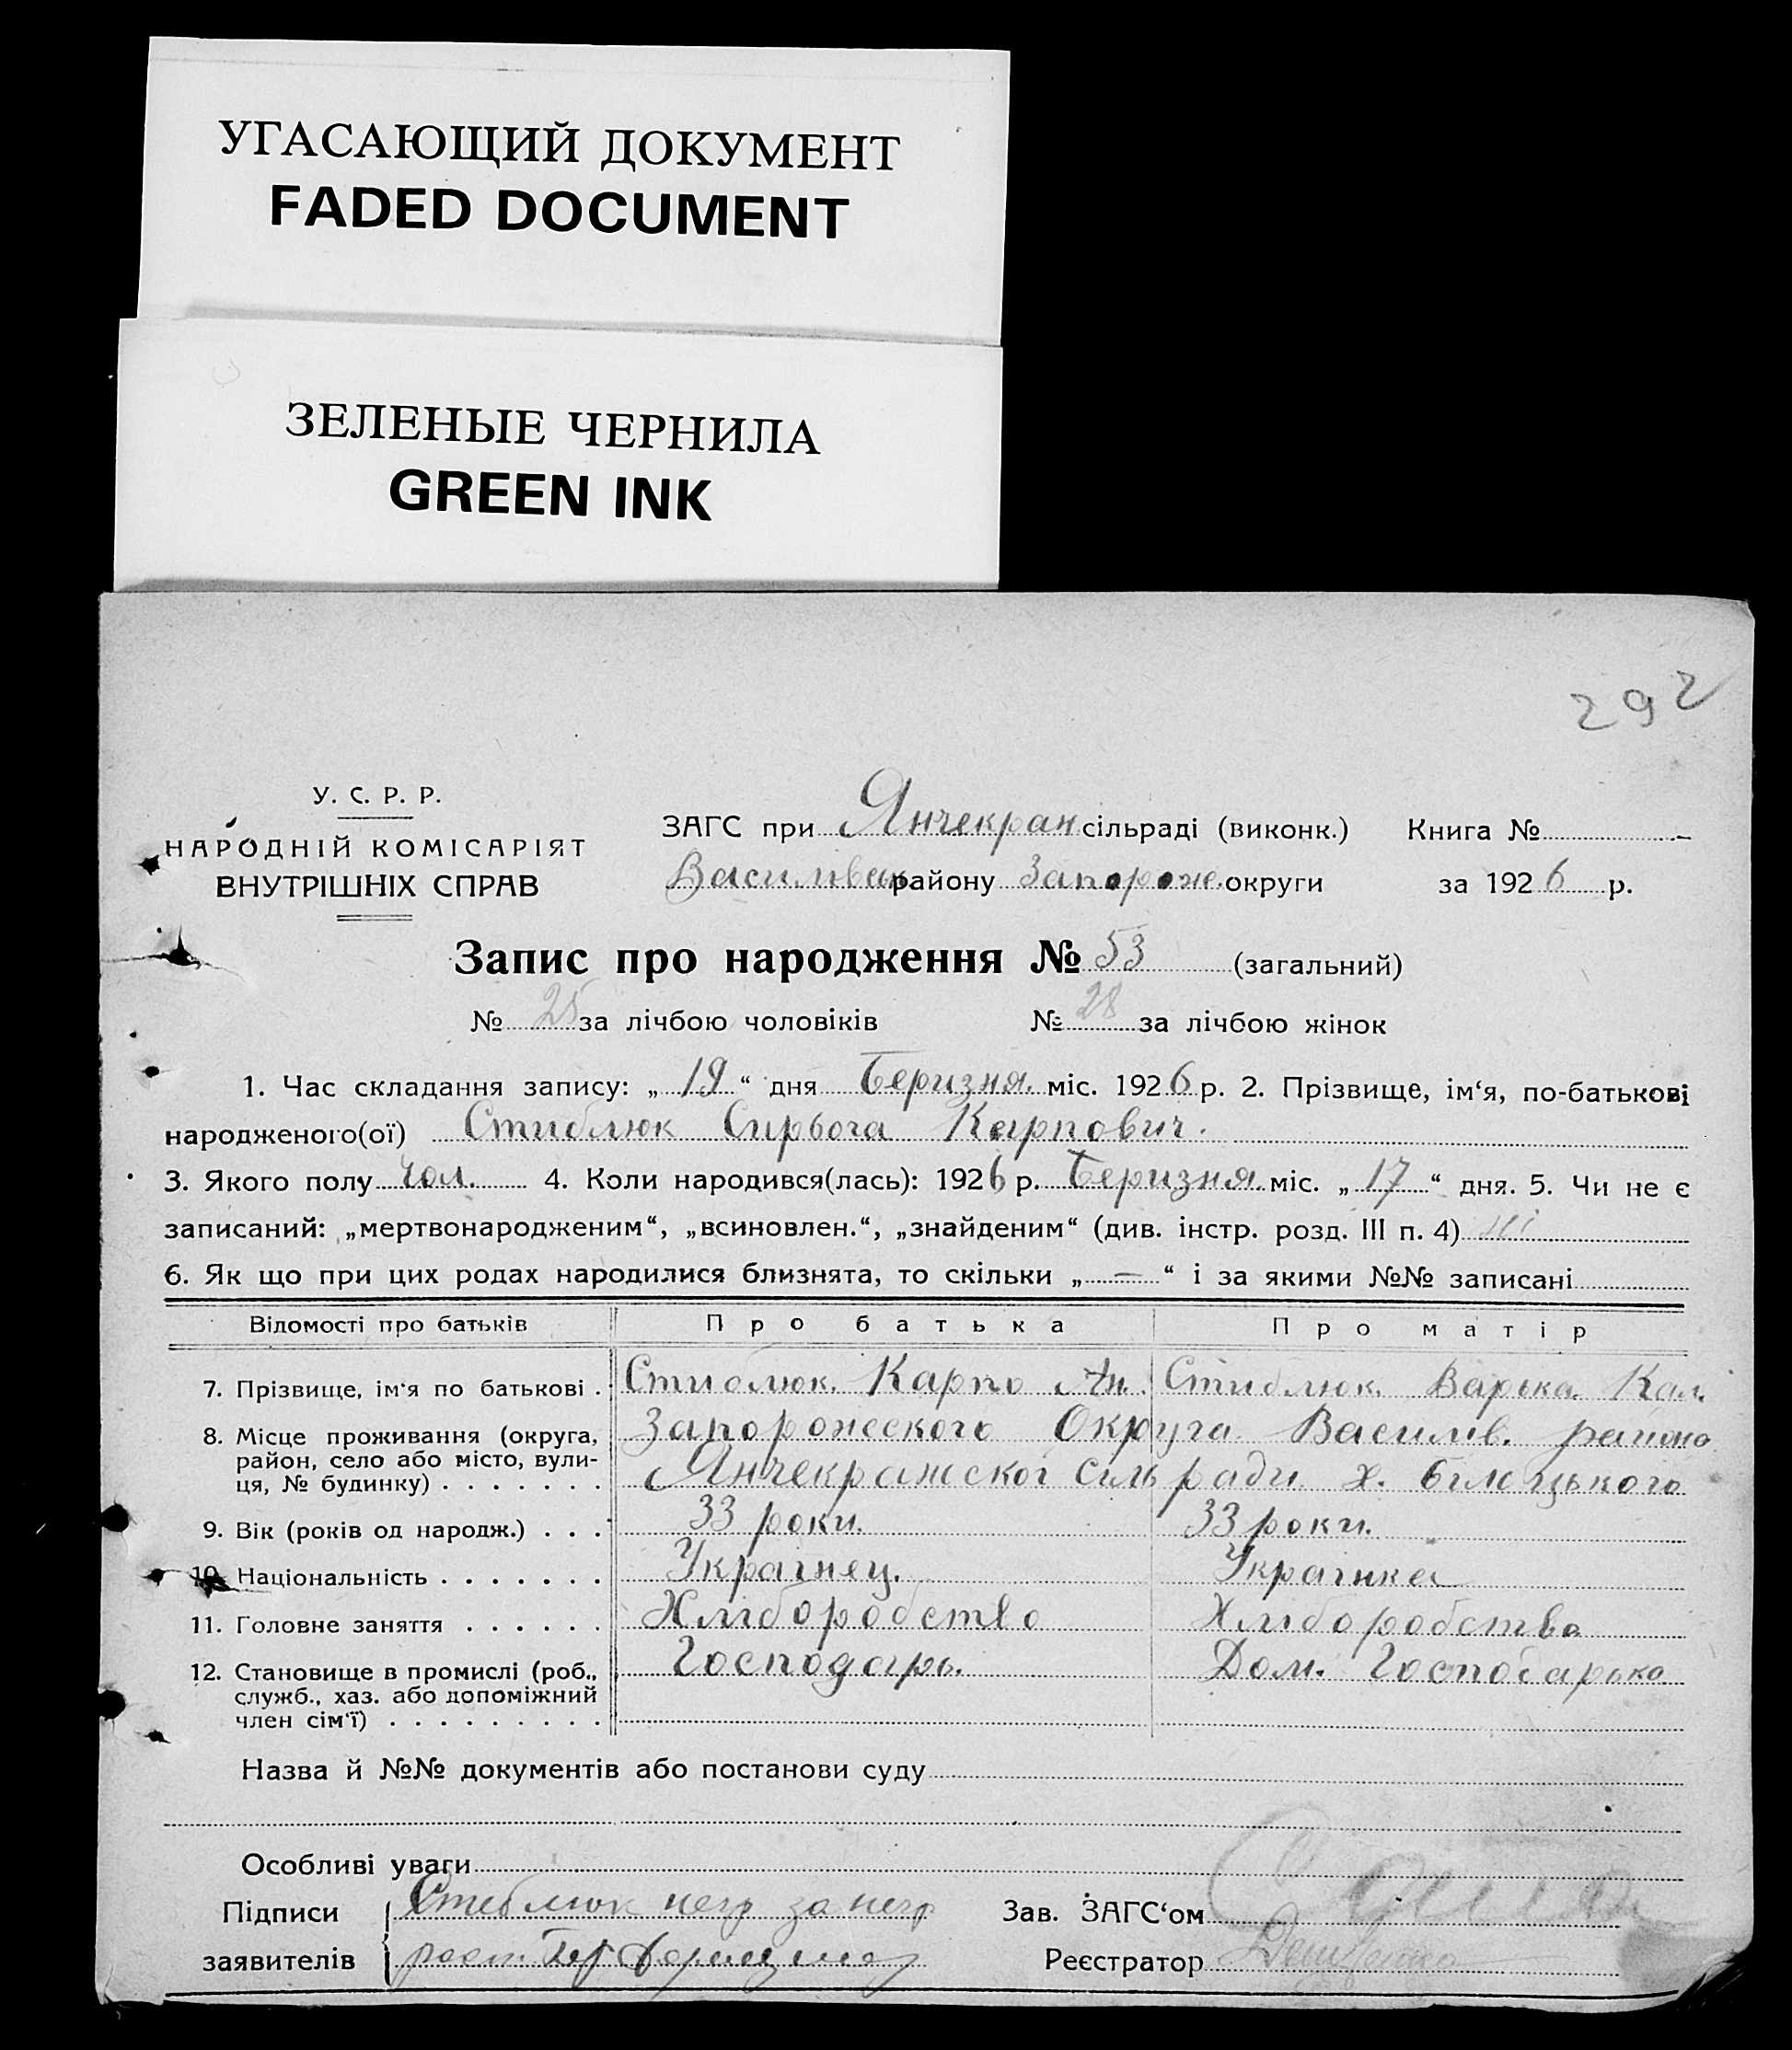 УГАСАЮЩИЙ ДОКУМЕНТ
FADED DOCUMENT
ЗЕЛЕНЫЕ ЧЕРНИЛА
GREEN INK
292
У. С. Р. Р.
НАРОДНІЙ КОМІСАРІЯТ
ВНУТРІШНІХ СПРАВ
ЗАГС при Янчекран сільраді (виконк.) Книга №
Василівськ району Запорож. округи за 1926 р.
Запис про народження № 53 (загальний)
№ 25 за лічбою чоловіків № 28 за лічбою жінок
1. Час складання запису: „19“ дня Беризня міс. 1926 р. 2. Прізвище, ім‘я, по-батькові
народженого(ої) Стиблюк Сирьога Карпович.
3. Якого полу чол. 4. Коли народився(лась): 1926 р. Беризня міс. „17“ дня. 5. Чи не є
записаний: „мертвонародженим“, „всиновлен.“, „знайденим“ (див. інстр. розд. III п. 4) ні
6. Як що при цих родах народилися близнята, то скільки „—“ і за якими №№ записані
Відомості про батьків Про батька Про матір
7. Прізвище, ім‘я по батькові . Стиблюк Карпо Ан. Стиблюк Варька Кал.
8. Місце проживання (округа, район, село або місто, вули-ця, № будинку) . . . . . . . Запорожского Округа Василів. району
Янчекранской сільради х. Білецького
9. Вік (років од народж.) . . . 33 роки. 33 роки.
10. Національність . . . . . . . Украінец. Украінка
11. Головне заняття . . . . . . Хліборобство Хлібороботва
12. Становище в промислі (роб., служб., хаз. або допоміжний член сім‘ї) . . . . . . . . . Господарь. Дом. Господарька
Назва й №№ документів або постанови суду
Особливі уваги
Підписи Стеблюк негр за негр Зав. ЗАГС‘ом
заявителів Реєстратор